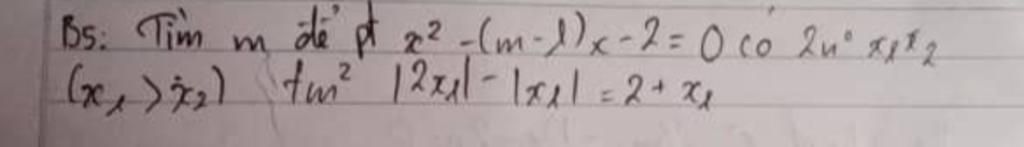 B5: Tìm m để pt x² - (m-1)x - 2 = 0 có 2n° x₁ x₂
(x₁ > x₂) tm² |2x₁| - |x₁| = 2 + x₁